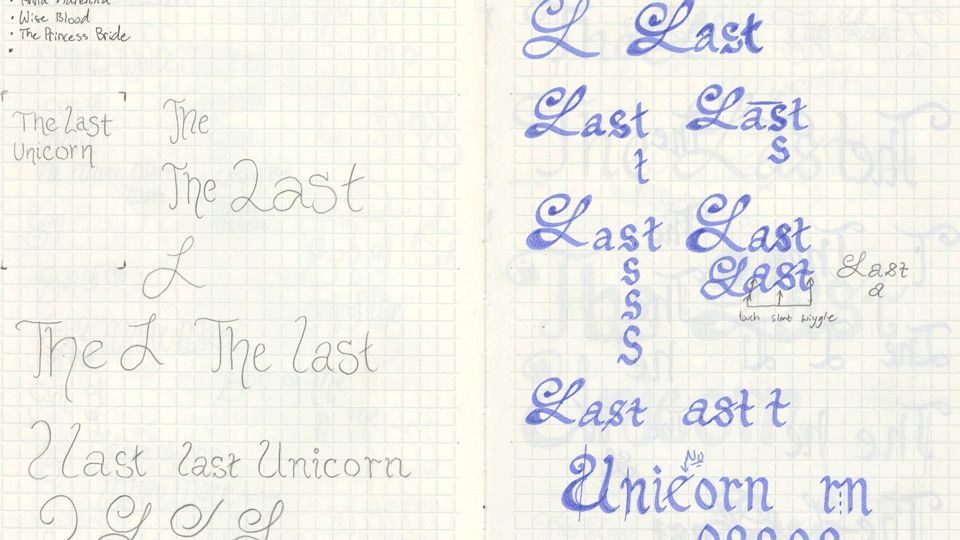 • Wise Blood
• The Princess Bride
•
The Last
Unicorn
The
The Last
L
The L The last
Last last Unicorn
L Last
Last Last
t
s
Last Last
s
s
s
Last Last
a
touch slant wiggle
Last ast t
No
Unicorn rn